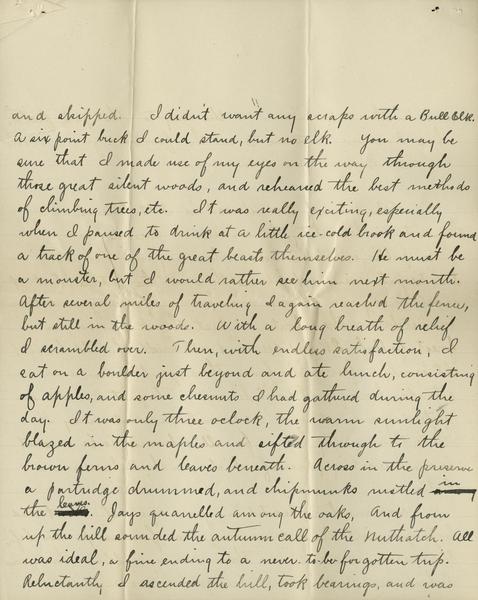 and skipped. I didn't want any scraps with a Bull Elk.
A six point buck I could stand, but no elk. You may be
sure that I made use of my eyes on the way through
those great silent woods, and rehearsed the best methods
of climbing trees, etc. It was really exciting, especially
when I paused to drink at a little ice-cold brook and found
a track of one of the great beasts themselves. He must be
a monster, but I would rather see him next month.
After several miles of traveling I again reached the fence,
but still in the woods. With a long breath of relief
I scrambled over. Then, with endless satisfaction, I
sat on a boulder just beyond and ate lunch, consisting
of apples, and some chesnuts I had gathered during the
day. It was only three oclock, the warm sunlight
blazed in the maples and sifted through to the
brown ferns and leaves beneath. Across in the preserve
a partridge drummed, and chipmunks rustled in
the leaves. Jays quarrelled among the oaks, And from
up the hill sounded the autumn call of the Nuthatch. All
was ideal, a fine ending to a never-to-be-forgotten trip.
Reluctantly I ascended the hill, took bearings, and was